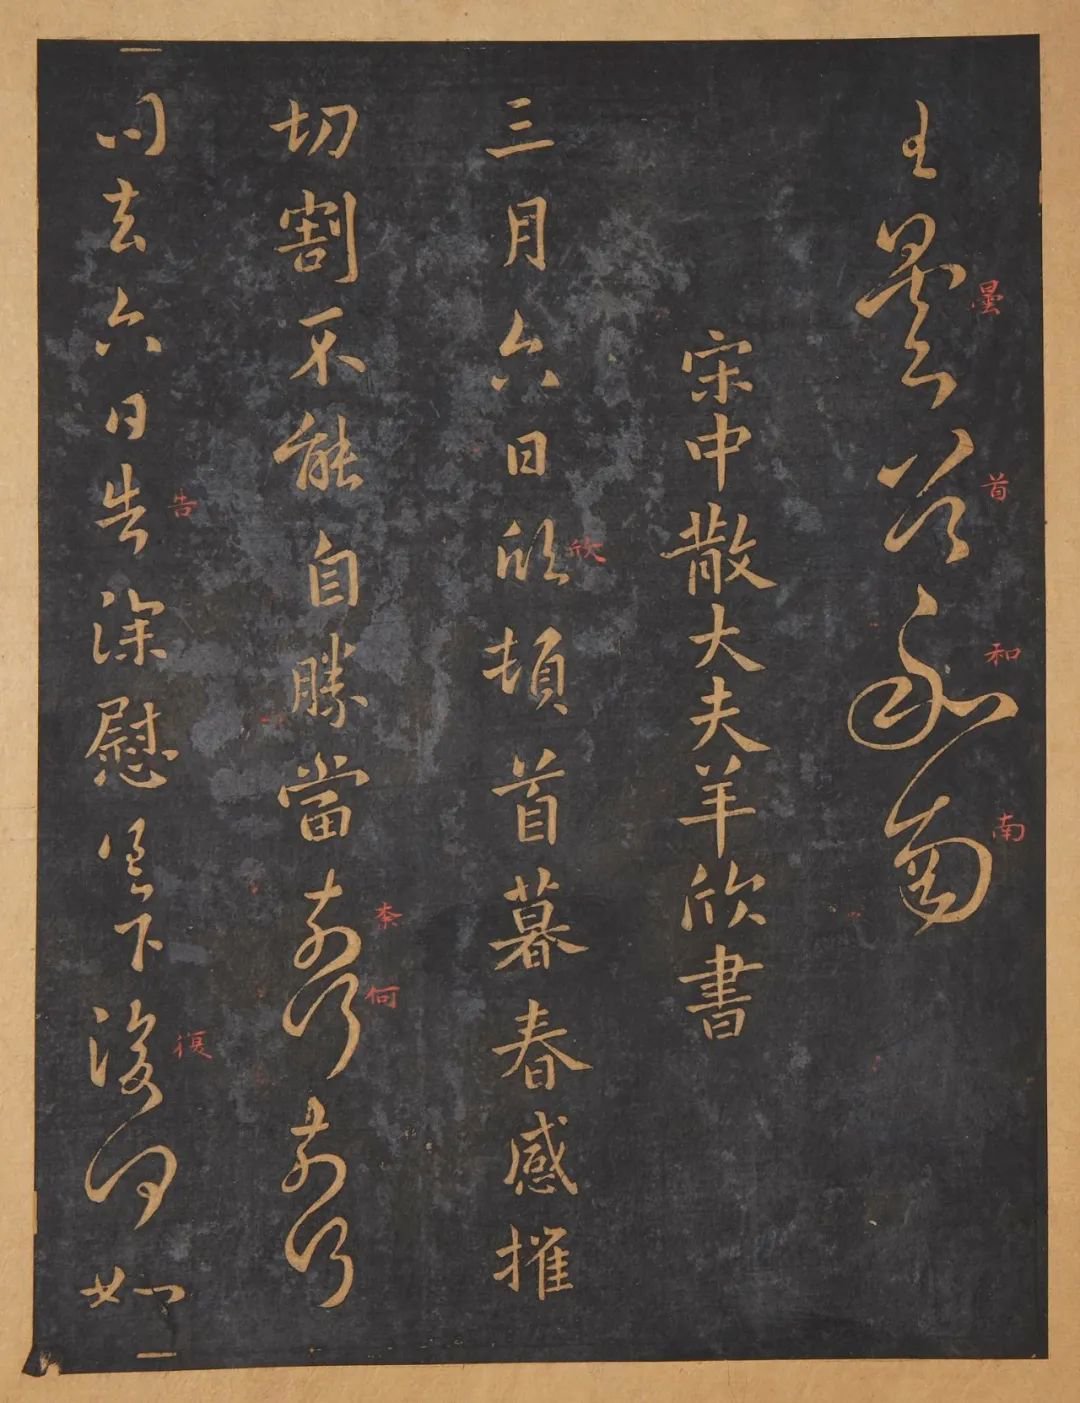 王曇首和南
曇
首
和
南
宋中散大夫羊欣書
三月六日欣頓首暮春感摧
欣
切割不能自勝當奈何奈何
柰
何
問去六日告深慰足下復何如
告
復